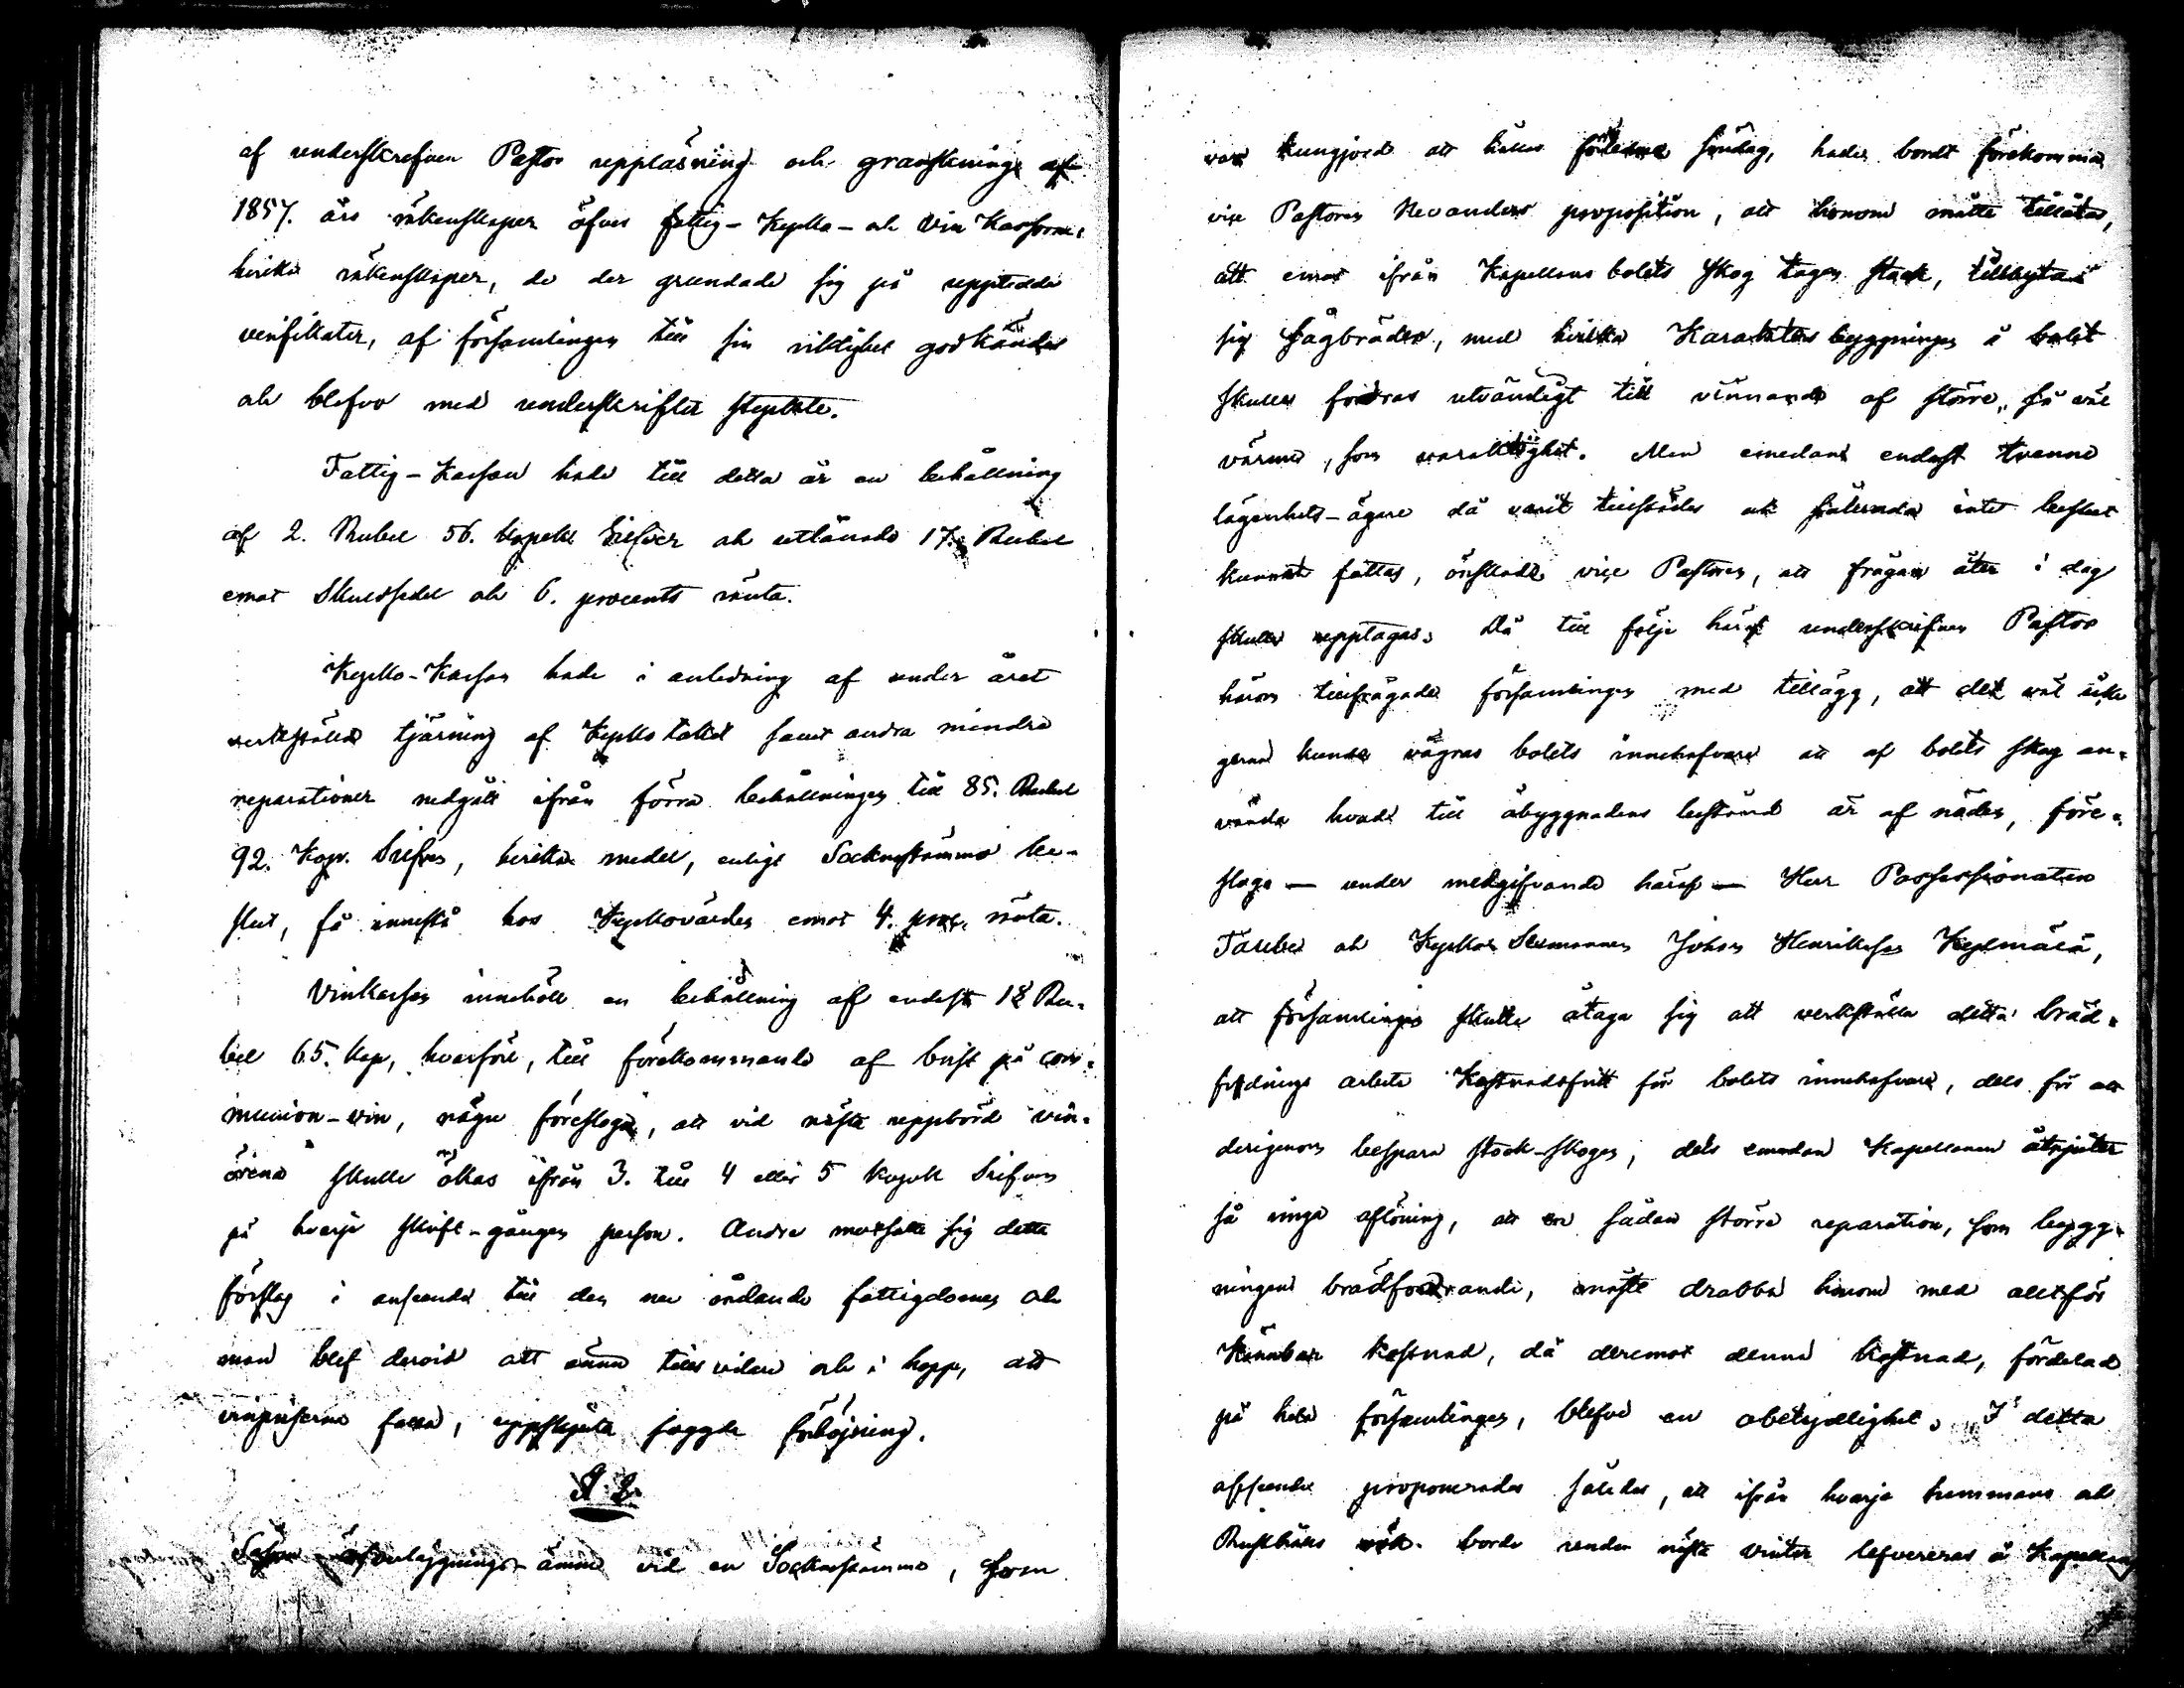 af underskrefven Pastor uppläsning och granskning af
1857. års räkenskaper öfver fattig- Kyrko- och Vin Kassorne,
hvilka räkenskaper, de der grundade sig på uppteedde
verifikater, af församlingen till sin riktighet godkändes
och blefvo med underskrifter styrkte.
Fattig-Kassan hade till detta år en behållning
af 2. Rubel 56. kopek Silfver och utlånade 17. Rubel
emot Skuldsedel och 6. procents ränta.
Kyrko-Kassan hade i anledning af under året
verkställd tjärning af Kyrkotaket samt andra mindre
reparationer nedgått ifrån förra behållningen till 85. Rubel
92. Kop. Silfver, hvilka medel, enligt Socknestämmo be-
slut, få innestå hos Kyrkovärden emot 4. proc. ränta.
Vinkassan innehöll en behållning af endast 18 Ru-
bel 65. kop, hvarföre, till förekommande af brist på com-
munion-vin, någre föreslogo, att vid nästa uppbörd vin-
örena skulle ökas ifrån 3. till 4 eller 5 kopek Silfver
på hvarje skrift-gången person. Andre motsatte sig detta
förslag i anseende till den nu rådande fattigdomen och
man blef dervid att ännu tills vidare och i hopp, att
vinpriserna falla, uppskjuta sagde förhöjning.
§ 2.
Såsom öfverläggnings-ämne vid en Sockenstämma, som
var kungjord att hållas förledne Söndag, hade bordt förekomma
vice Pastoren Nevanders proposition, att honom måtte tillåtas,
att emot ifrån Kapellans bolets skog tagen stock, tillbyta
sig sågbräder, med hvilka Karakters byggningen å bolet
skulle fodras utvändigt till vinnande af större, så väl
värme, som varaktighet. Men emedan endast tvenne
lägenhets-ägare då varit tillstädes och således intet beslut
kunnat fattas, önskade vice Pastoren, att frågan åter i dag
skulle upptagas. Då till följe häraf underskrifven Pastor
härom tillfrågade församlingen med tillägg, att det väl icke
gerna kunde vägras bolets innehafvare att af bolets skog an-
vända hvad till åbyggnadens bestånd är af nöden, före-
slogo — under medgifvande häraf — Herr Possessionaten
och Kyrko Sexmannen Johan Henriksson
att församlingen skulle åtaga sig att verkställa detta bräd-
fodrings arbete Kostnadsfritt för bolets innehafvare, dels för att
derigenom bespara stock-skogen, dels emedan Kapellanen åtnjuter
så ringa aflöning, att en sådan större reparation, som bygg-
ningens brädfodrande, måste drabba honom med alltför
Kännbar kostnad, då deremot denna kostnad, fördelad
på hela församlingen, blefve en obetydlighet. I detta
afseende proponerades således, att ifrån hvarje hemmans och
rök borde under nästa vinter lefvereras å Kapellans